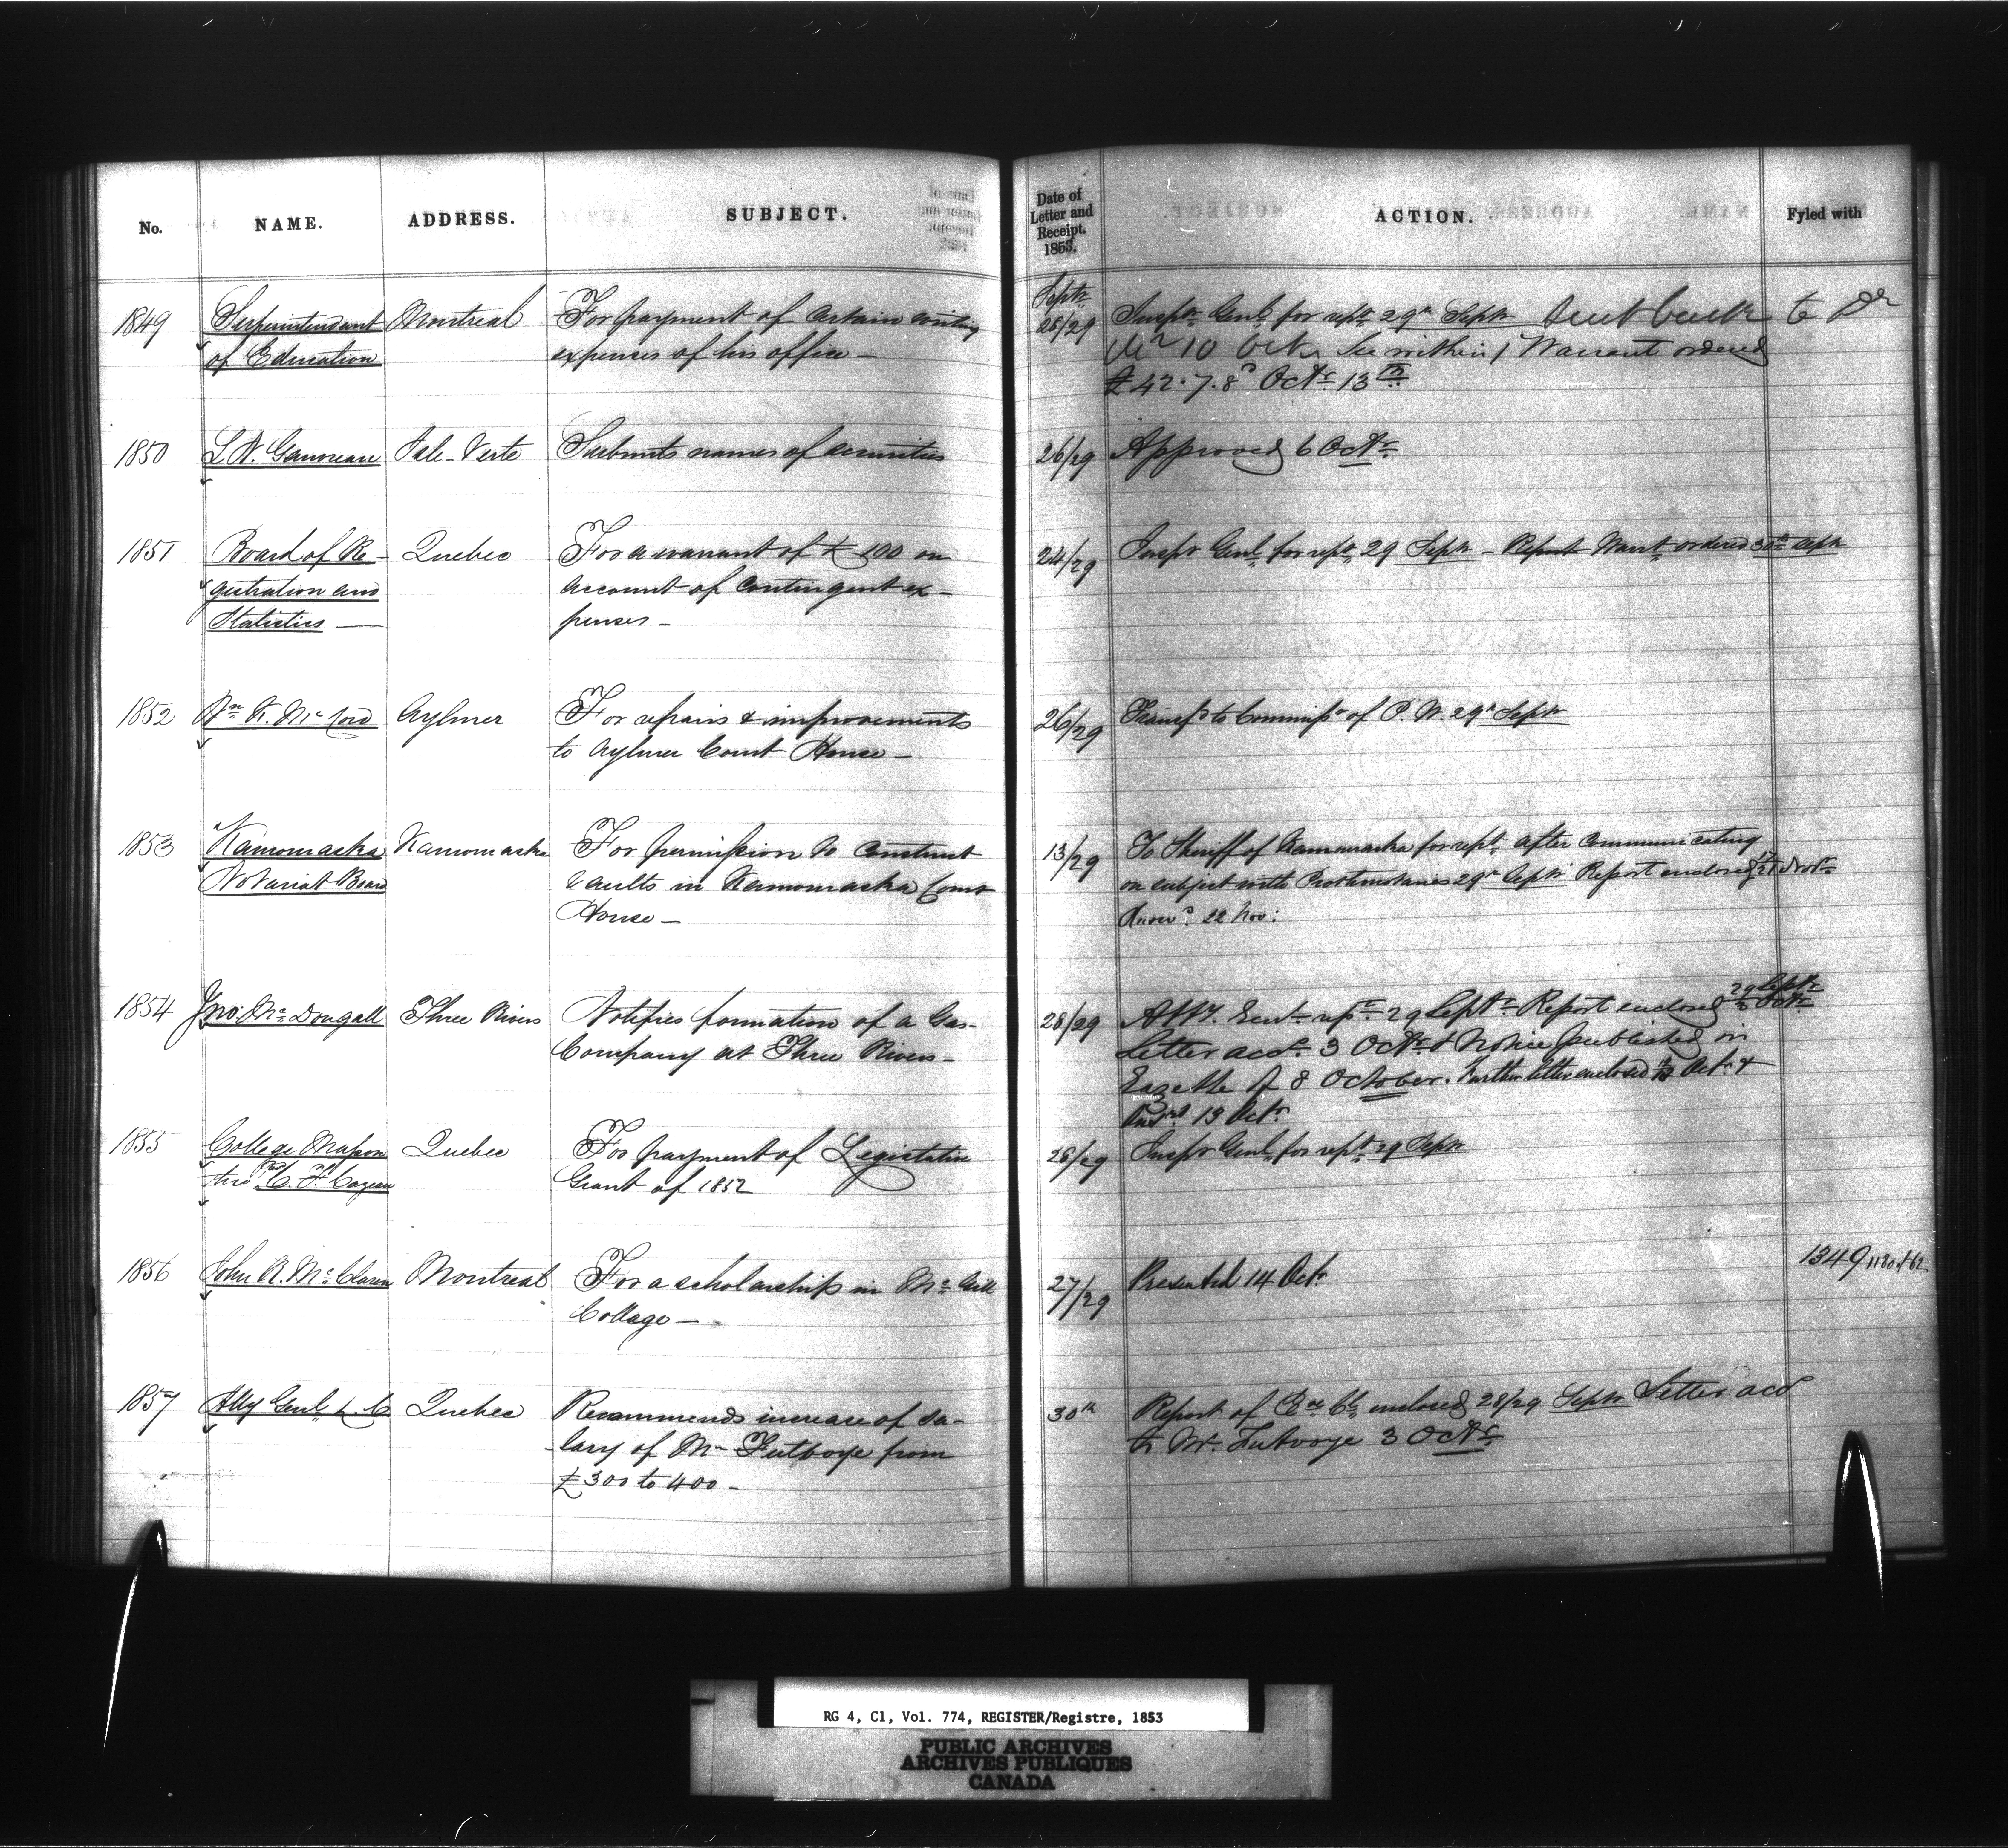 No.
NAME.
ADDRESS.
SUBJECT.
Date of
Letter and
Receipt.
1853.
ACTION.
Fyled with
1849
Superintendent
of Education
Montreal
For payment of certain
expenses of his office —
Septr
28/29
Inspr Genl for rept 29th Septr Sent back to Dr
M 10 Octr See within / Warrant ordered
£42.7.8 Octr 13th
1850
Isle-Verte
Submits names of securities
26/29
Approved 6 Octr
1851
Board of Re-
gistration and
Statistics —
Quebec
For a warrant of £100 on
account of contingent ex-
penses —
24/29
Inspr Genl for rept 29 Septr — Report Warrt ordered 30th Septr
1852
Wm K. McCord
Aylmer
For repairs & improvements
to Aylmer Court House —
26/29
Transfd to Commissr of P. W. 29th Septr
1853
Kamouraska
Notariat Board
Kamouraska
For permission to construct
vaults in Kamouraska Court
House —
13/29
To Sheriff of Kamouraska for rept after communicating
on subject with Prothonotaries 29th Septr Report enclosed Novr
Answd 22 Nov:
1854
Jno: McDougall
Three Rivers
Notifies formation of a Gas-
Company at Three Rivers —
28/29
Atty. Genl rept 29 Septr Report enclosed 29 Septr
3 Octr
Letter acd 3 Octr & Notice published in
Gazette of 8 October. Further letter enclosed Octr &
Ansd 13 Octr
1855
College Masson
thro' Revd C. F. Cazeau
Quebec
For payment of Legislative
Grant of 1852
28/29
Inspr Genl for rept 29 Septr
1856
John R. McClaren
Montreal
For a scholarship in McGill
College —
27/29
Presented 14 Octr
1349 1180 of 62
1857
Atty Genl L. C
Quebec
Recommends increase of sa-
lary of Mr Futvoye from
£300 to 400 —
30th
Report of Ex Cl enclosed 28/29 Septr Letter acd
to Mr. Futvoye 3 Octr
RG 4, C1, Vol. 774, REGISTER/Registre, 1853
PUBLIC ARCHIVES
ARCHIVES PUBLIQUES
CANADA